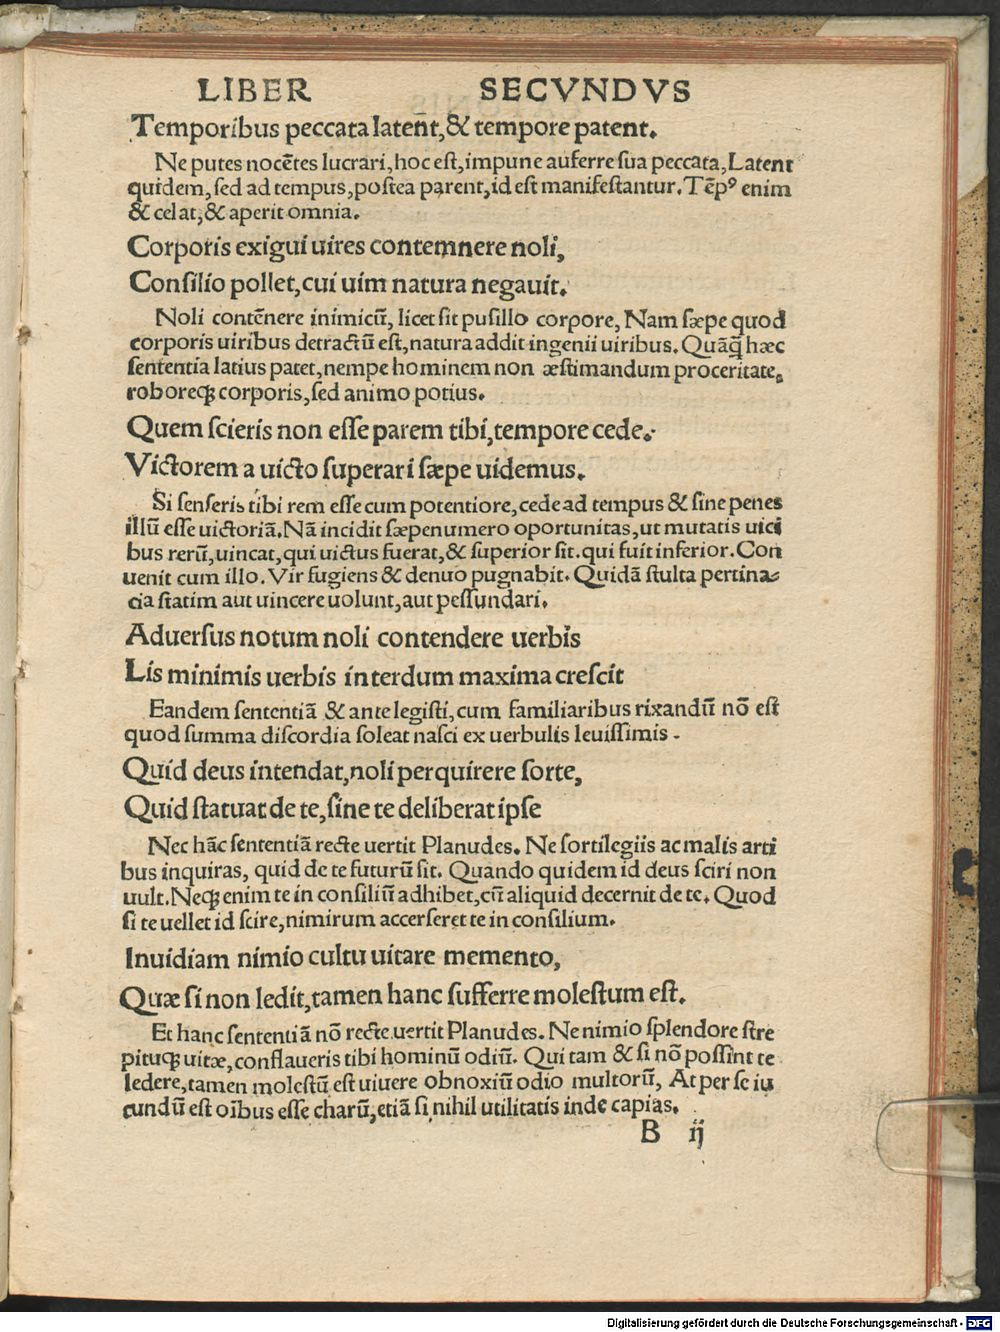 LIBER SECVNDVS
Temporibus peccata latent,& tempore patent.
Ne putes nocẽtes lucrari,hoc eſt,impune auferre ſua peccata,Latent
quidem,ſed ad tempus,poſtea parent,id eſt manifeſtantur.Tẽpꝰ enim
& celat,& aperit omnia.
Corporis exigui uires contemnere noli,
Conſilio pollet,cui uim natura negauit.
Noli contẽnere inimicũ, licet ſit puſillo corpore, Nam ſæpe quod
corporis uiribus detractũ eſt,natura addit ingenii uiribus.Quãq̃ hæc
ſententia latius patet,nempe hominem non æſtimandum proceritate,
roboreqꝫ corporis,ſed animo potius.
Quem ſcieris non eſſe parem tibi,tempore cede.
Victorem a uicto ſuperari ſæpe uidemus.
Si ſenſeris tibi rem eſſe cum potentiore,cede ad tempus & ſine penes
illũ eſſe uictoriã.Nã incidit ſæpenumero oportunitas,ut mutatis uici
bus rerũ,uincat,qui uictus fuerat,& ſuperior ſit.qui fuit inferior.Con
uenit cum illo.Vir fugiens & denuo pugnabit.Quidã ſtulta pertina⸗
cia ſtatim aut uincere uolunt,aut peſſundari.
Aduerſus notum noli contendere uerbis
Lis minimis uerbis interdum maxima creſcit
Eandem ſententiã & ante legiſti,cum familiaribus rixandũ nõ eſt
quod ſumma diſcordia ſoleat naſci ex uerbulis leuiſſimis.
Quid deus intendat,noli perquirere ſorte,
Quid ſtatuat de te,ſine te deliberat ipſe
Nec hãc ſententiã recte uertit Planudes. Ne ſortilegiis ac malis arti
bus inquiras, quid de te futurũ ſit. Quando quidem id deus ſciri non
uult.Neqꝫ enim te in conſiliũ adhibet,cũ aliquid decernit de te.Quod
ſi te uellet id ſcire,nimirum accerſeret te in conſilium.
Inuidiam nimio cultu uitare memento,
Quæ ſi non ledit,tamen hanc ſufferre moleſtum eſt.
Et hanc ſententiã nõ recte uertit Planudes. Ne nimio ſplendore ſtre
pituqꝫ uitæ,conflaueris tibi hominũ odiũ. Qui tam & ſi nõ poſſint te
ledere,tamen moleſtũ eſt uiuere obnoxiũ odio multorũ, At per ſe iu
cundũ eſt oĩbus eſſe charũ,etiã ſi nihil utilitatis inde capias.
B ij
Digitalisierung gefördert durch die Deutsche Forschungsgemeinschaft - DFG